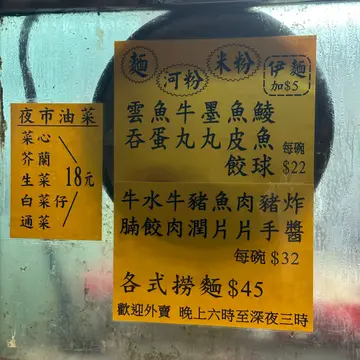 夜市油菜
菜心
芥蘭
生菜
白菜仔
通菜
18元
麵
河粉
米粉
伊麵
加$5
雲吞
魚蛋
牛丸
墨丸
魚皮餃
鯪魚球
每碗
$22
牛腩
水餃
牛肉
豬潤
魚片
肉片
豬手
炸醬
每碗 $32
各式撈麵 $45
歡迎外賣 晚上六時至深夜三時